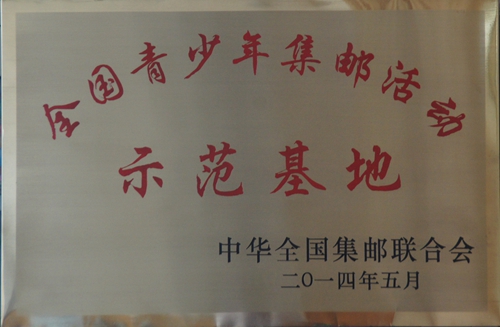 全国青少年集邮活动
示范基地
中华全国集邮联合会
二〇一四年五月